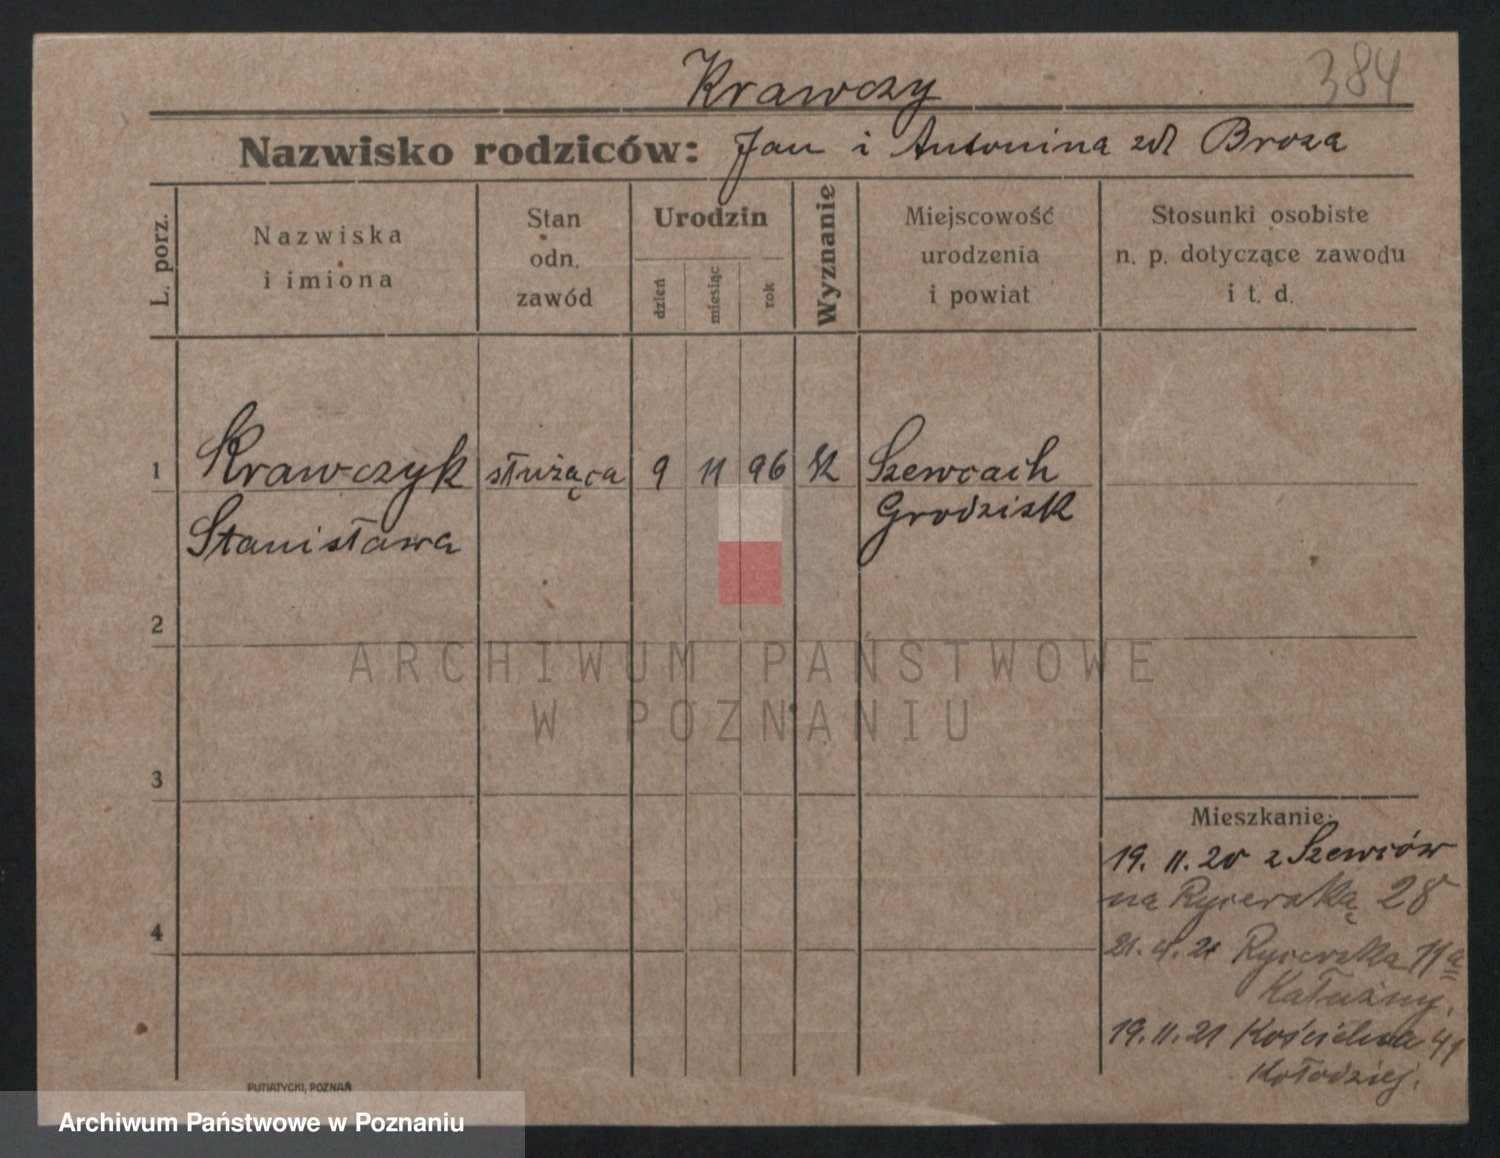 Krawczy
384
Nazwisko rodziców: Jan i Antonina zd Broza
L. porz.
Nazwiska
i imiona
Stan
odn.
zawód
Urodzin
dzień
miesiąc
rok
Wyznanie
Miejscowość
urodzenia
i powiat
Stosunki osobiste
n. p. dotyczące zawodu
i t. d.
1 Krawczyk służąca 9 11 96 k Szewcach
Stanisława Grodzisk
2
ARCHIWUM PAŃSTWOWE
W POZNANIU
3
Mieszkanie:
19. 11. 20 z Szewców
na Rycerską 28
21. 4. 21 Rycerska 11a
Kałużny.
4
19. 11. 21 Kościelna 41
Kołodziej.
PUTIATYCKI, POZNAŃ
Archiwum Państwowe w Poznaniu